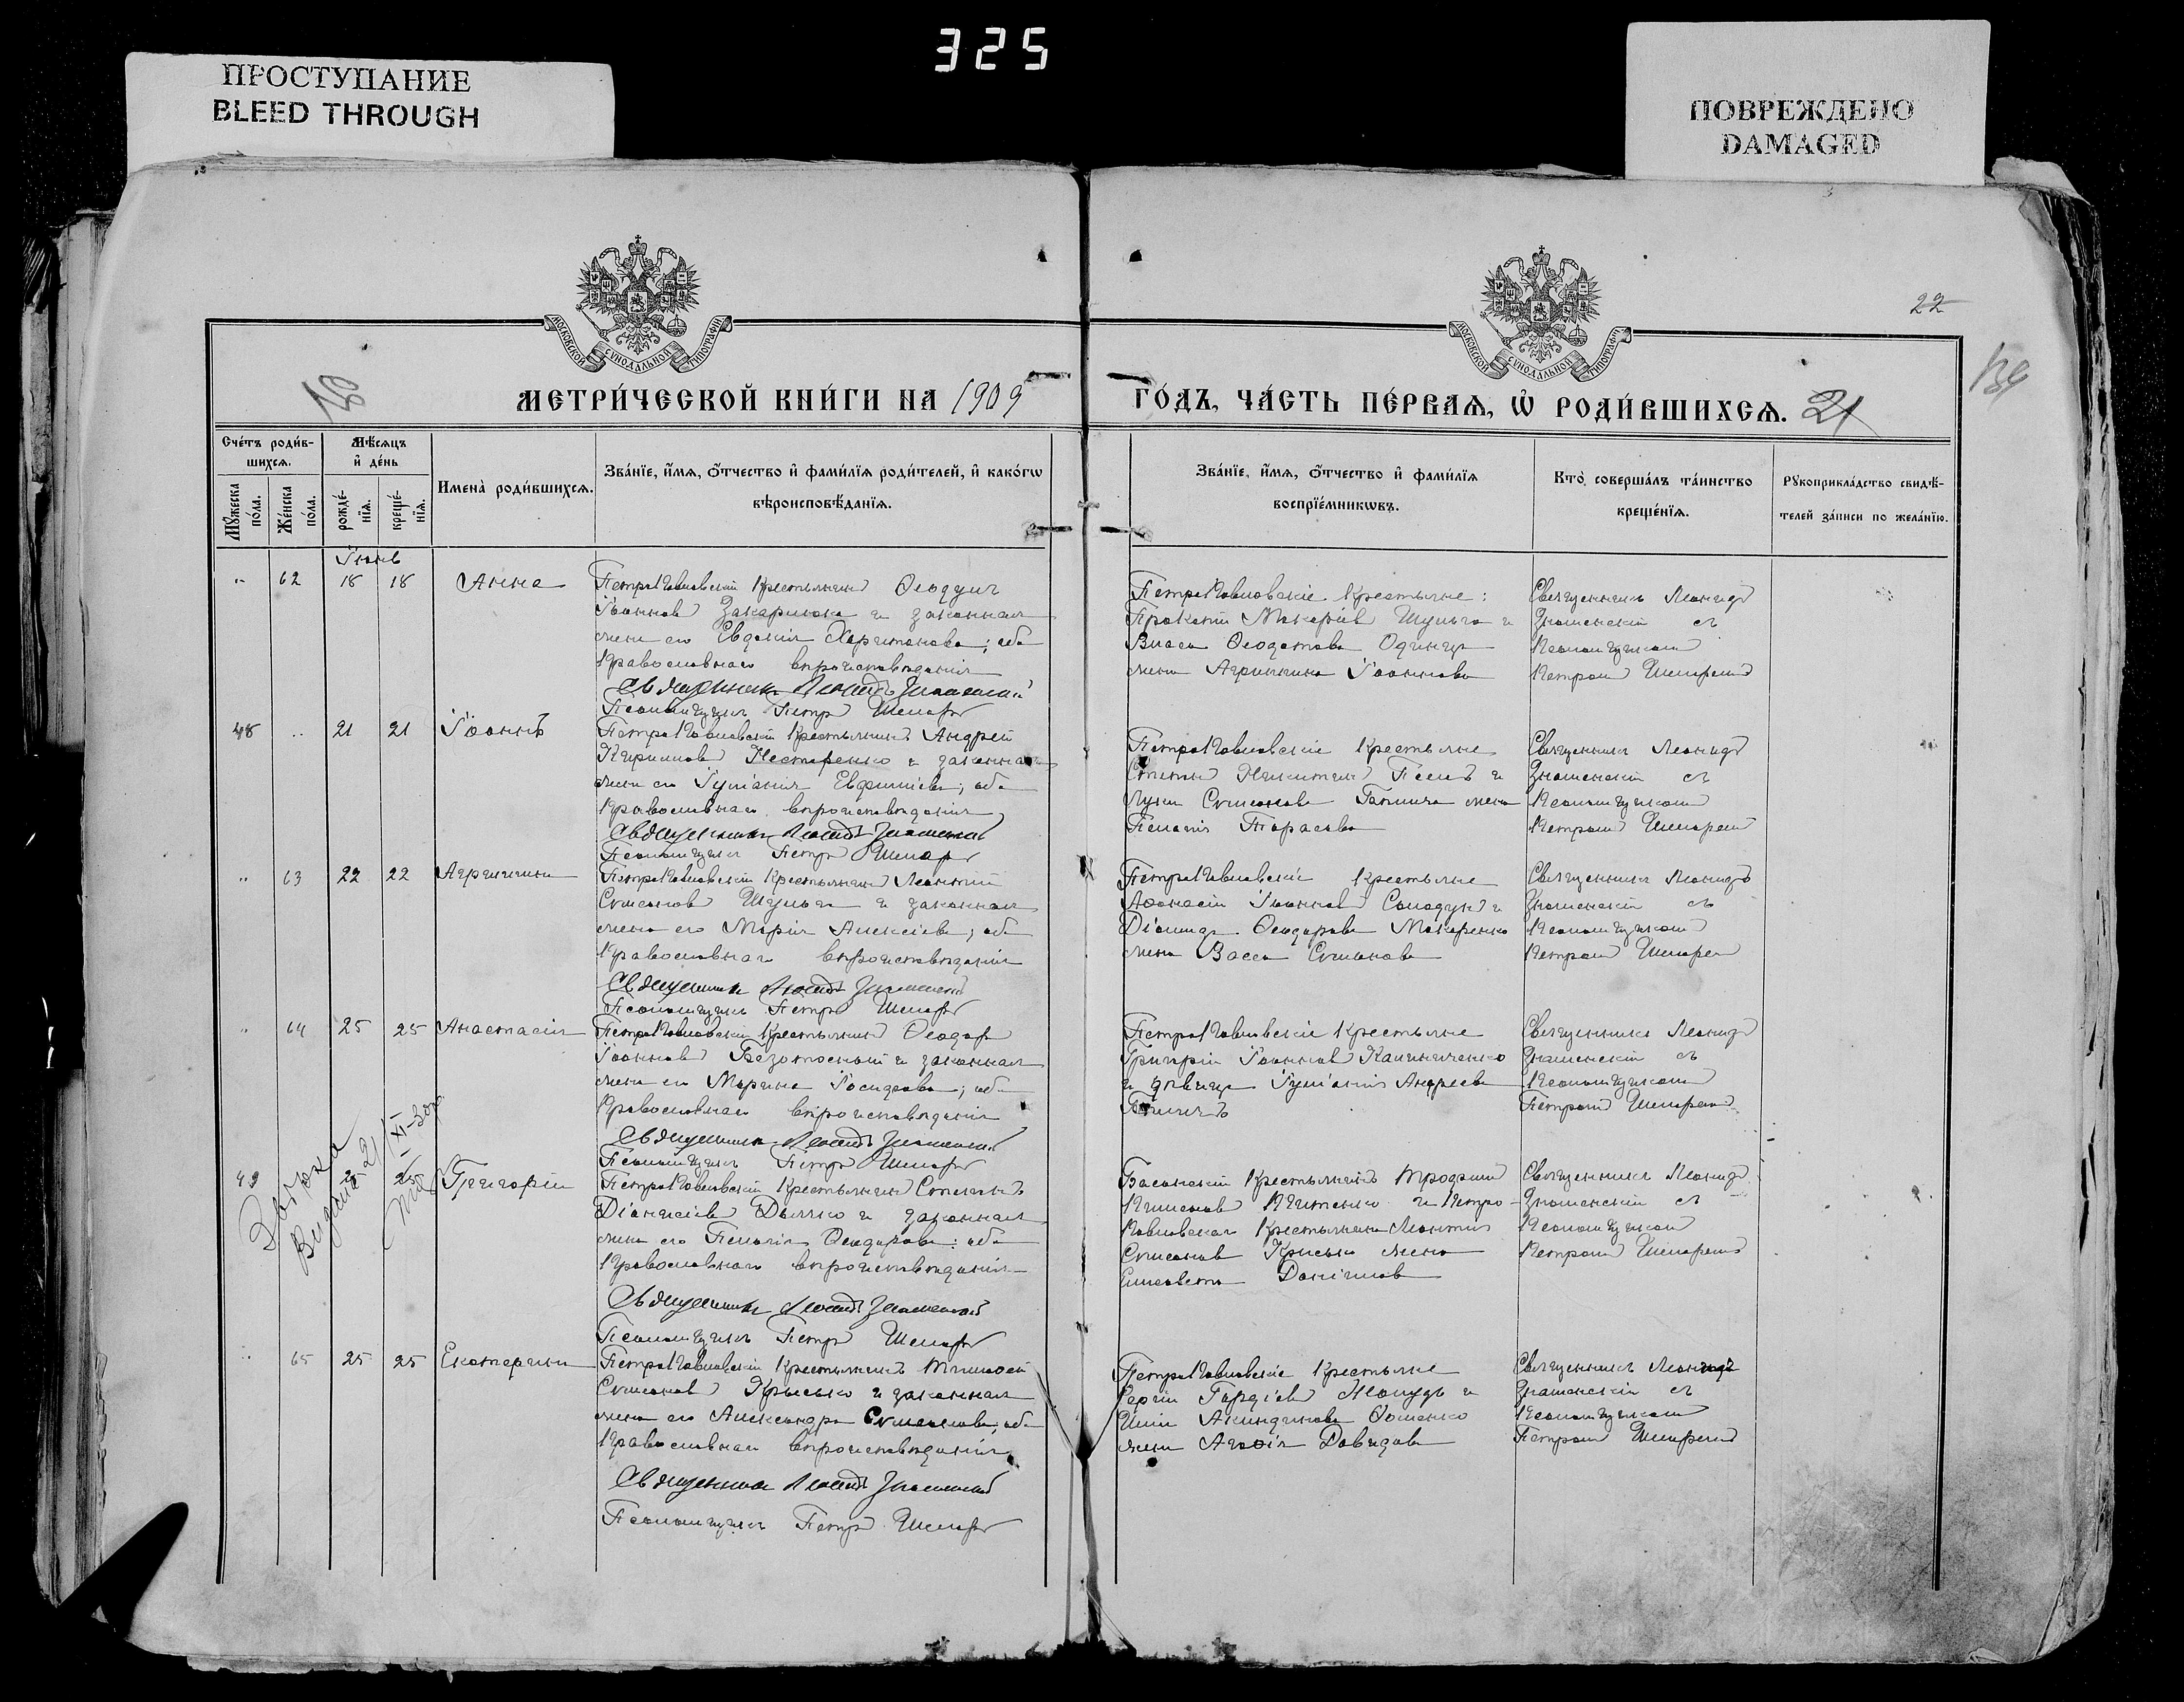 325
ПРОСТУПАНИЕ
BLEED THROUGH
ПОВРЕЖДЕНО
DAMAGED
22
МОСКОВСКОЙ СѴНОДАЛЬНОЙ ТИПОГРАФІИ
МОСКОВСКОЙ СѴНОДАЛЬНОЙ ТИПОГРАФІИ
МЕТРИ́ЧЕСКОЙ КНИ́ГИ НА 1909
ГО́ДЪ, ЧА́СТЬ ПЕ́РВАЯ, Ѡ҆ РОДИ́ВШИХСЯ. 21
Сче́тъ роди́в-
шихся.
Мѣ́сяцъ
и҆ де́нь
Мꙋ́жеска
по́ла.
Же́нска
по́ла.
рожде́-
нїя.
креще́-
нїя.
Имена̀ роди́вшихся.
Зва́нїе, и҆́мя, ѻ҆́тчество и҆ фами́лїя роди́телей, и҆ како́гѡ
вѣроисповѣ́данїя.
Зва́нїе, и҆́мя, ѻ҆́тчество и҆ фами́лїя
воспрїе́мникѡвъ.
Кто̀ соверша́лъ та́инство
креще́нїя.
Рꙋкоприкла́дство свидѣ́-
телей за́писи по жела́нїю.
Іюнь
" 62 18 18 Анна
Петропавловскій крестьянинъ Ѳеодулъ
Іоанновъ Захарченко и законная
жена его Евдокія Харитонова; оба
православнаго вѣроисповѣданія
Священникъ Леонидъ Знаменскій
Псаломщикъ Петръ
Петропавловскіе крестьяне:
Прокопій Макаріевъ Шульга и
Власа Ѳеодотова Одинца
жена Агрипина Іоаннова
Священникъ Леонидъ
Знаменскій съ
псаломщикомъ
Петромъ
48 " 21 21 Іоаннъ
Петропавловскій крестьянинъ Андрей
Кирилловъ Нестеренко и законная
жена его Іуліанія Евфиміева; оба
православнаго вѣроисповѣданія
Священникъ Леонидъ Знаменскій
Псаломщикъ Петръ
Петропавловскіе крестьяне
Никитинъ и
Луки Симеонова жена
Пелагія Тарасова
Священникъ Леонидъ
Знаменскій съ
псаломщикомъ
Петромъ
" 63 22 22 Агрипина
Петропавловскій крестьянинъ Леонтій
Симеоновъ Шульга и законная
жена его Марія Алексіева; оба
православнаго вѣроисповѣданія
Священникъ Леонидъ Знаменскій
Псаломщикъ Петръ
Петропавловскіе крестьяне
Аѳанасій Іоанновъ Солодунъ и
Діомида Ѳеодорова Макаренко
жена Васса Симеонова
Священникъ Леонидъ
Знаменскій съ
псаломщикомъ
Петромъ
" 64 25 25 Анастасія
Петропавловскій крестьянинъ Ѳеодоръ
Іоанновъ Безотосный и законная
жена его Марина Іосифова; оба
православнаго вѣроисповѣданія
Священникъ Леонидъ Знаменскій
Псаломщикъ Петръ
Петропавловскіе крестьяне
Григорій Іоанновъ Калиниченко
и дѣвица Іуліанія Андреева
Священникъ Леонидъ
Знаменскій съ
псаломщикомъ
Петромъ
49 25 Григорій
Петропавловскій крестьянинъ Стефанъ
Діонисіевъ Дьячко и законная
жена его Пелагія Ѳеодорова; оба
православнаго вѣроисповѣданія
Священникъ Леонидъ Знаменскій
Псаломщикъ Петръ
крестьянинъ Трофимъ
и Петро-
павловскаго крестьянина Леонтія
Симеонова Крысько жена
Елисавета Даніилова
Священникъ Леонидъ
Знаменскій съ
псаломщикомъ
Петромъ
" 65 25 25 Екатерина
Петропавловскій крестьянинъ Тимоѳей
Симеоновъ Крысько и законная
жена его Александра Симеонова; оба
православнаго вѣроисповѣданія
Священникъ Леонидъ Знаменскій
Псаломщикъ Петръ
Петропавловскіе крестьяне
Сергій Гордіевъ и
Иліи Акиндинова Ѳоменко
жена Агаѳія Давидова
Священникъ Леонидъ
Знаменскій съ
псаломщикомъ
Петромъ